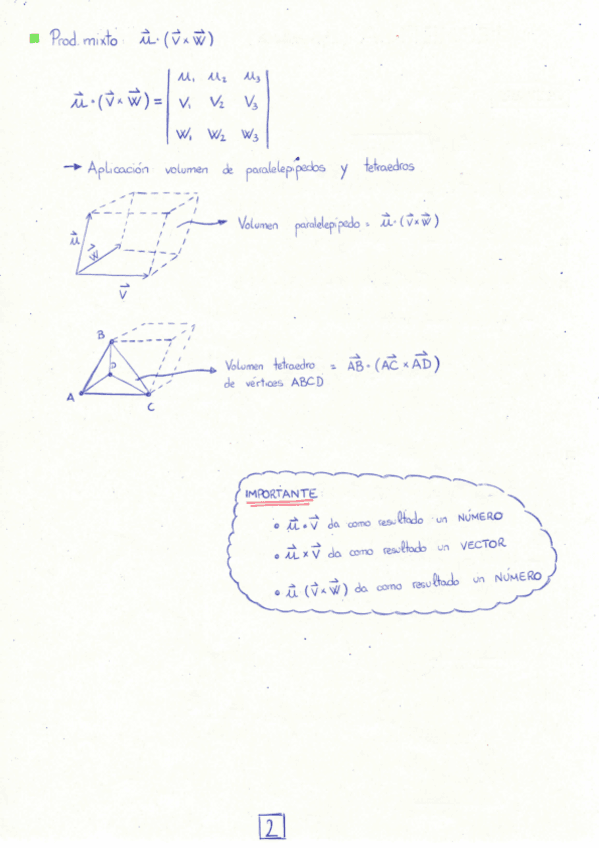 Prod. mixto: u⃗ · (v⃗ × w⃗)
u⃗ · (v⃗ × w⃗) = | u₁ u₂ u₃ |
| v₁ v₂ v₃ |
| w₁ w₂ w₃ |
→ Aplicación volumen de paralelepípedos y tetraedros
u⃗
w⃗
v⃗
Volumen paralelepípedo = u⃗ · (v⃗ × w⃗)
B
D
A
C
Volumen tetraedro = AB⃗ · (AC⃗ × AD⃗)
de vértices ABCD
IMPORTANTE
• u⃗ · v⃗ da como resultado un NÚMERO
• u⃗ × v⃗ da como resultado un VECTOR
• u⃗ (v⃗ × w⃗) da como resultado un NÚMERO
2